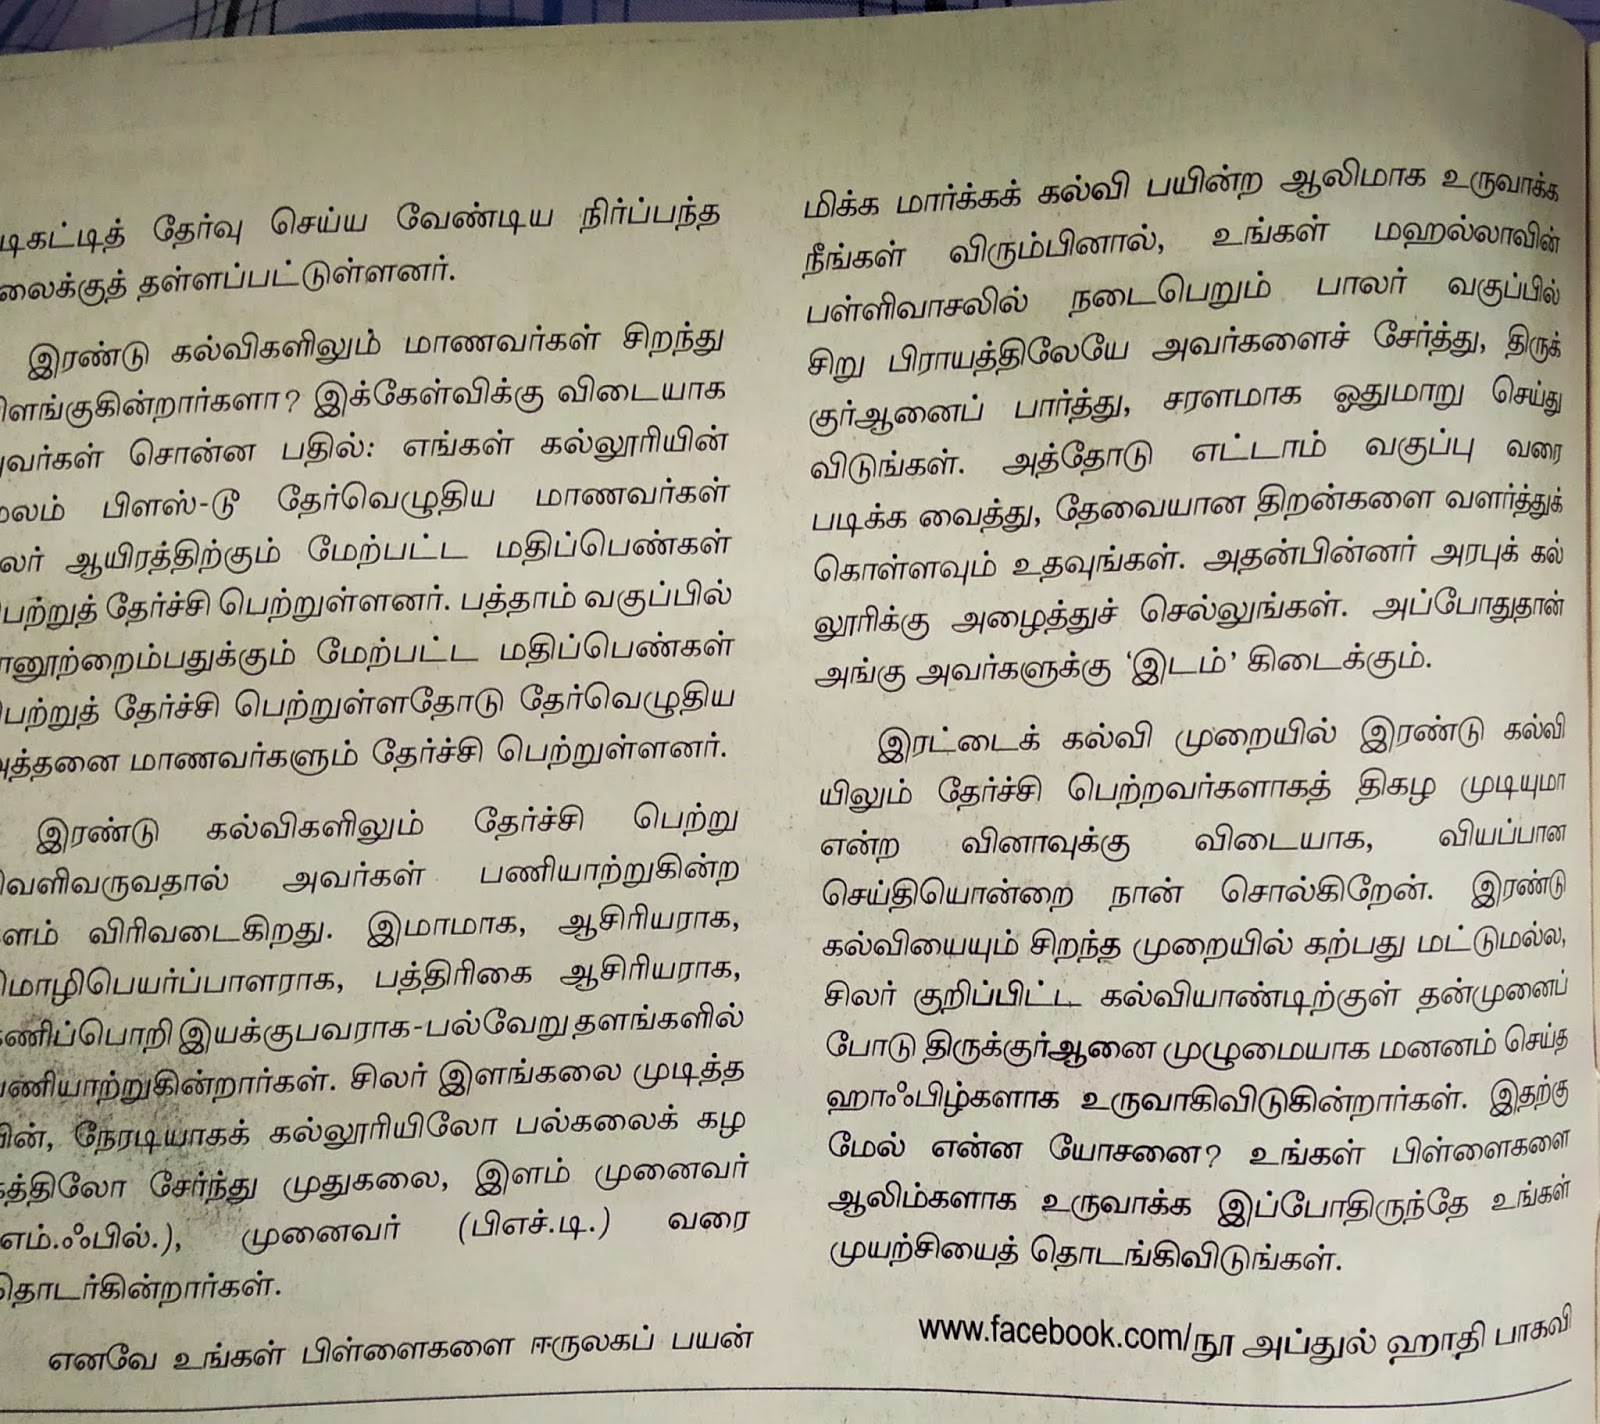 டிகட்டித் தேர்வு செய்ய வேண்டிய நிர்ப்பந்த
லைக்குத் தள்ளப்பட்டுள்ளனர்.
இரண்டு கல்விகளிலும் மாணவர்கள் சிறந்து
ளங்குகின்றார்களா? இக்கேள்விக்கு விடையாக
வர்கள் சொன்ன பதில்: எங்கள் கல்லூரியின்
லம் பிளஸ்-டூ தேர்வெழுதிய மாணவர்கள்
லர் ஆயிரத்திற்கும் மேற்பட்ட மதிப்பெண்கள்
பற்றுத் தேர்ச்சி பெற்றுள்ளனர். பத்தாம் வகுப்பில்
னூற்றைம்பதுக்கும் மேற்பட்ட மதிப்பெண்கள்
பற்றுத் தேர்ச்சி பெற்றுள்ளதோடு தேர்வெழுதிய
த்தனை மாணவர்களும் தேர்ச்சி பெற்றுள்ளனர்.
இரண்டு கல்விகளிலும் தேர்ச்சி பெற்று
வளிவருவதால் அவர்கள் பணியாற்றுகின்ற
ளம் விரிவடைகிறது. இமாமாக, ஆசிரியராக,
மாழிபெயர்ப்பாளராக, பத்திரிகை ஆசிரியராக,
ணிப்பொறி இயக்குபவராக-பல்வேறு தளங்களில்
ணியாற்றுகின்றார்கள். சிலர் இளங்கலை முடித்த
பின், நேரடியாகக் கல்லூரியிலோ பல்கலைக் கழ
கத்திலோ சேர்ந்து முதுகலை, இளம் முனைவர்
எம்.ஃபில்.), முனைவர் (பிஎச்.டி.) வரை
தாடர்கின்றார்கள்.
எனவே உங்கள் பிள்ளைகளை ஈருலகப் பயன்
மிக்க மார்க்கக் கல்வி பயின்ற ஆலிமாக உருவாக்க
நீங்கள் விரும்பினால், உங்கள் மஹல்லாவின்
பள்ளிவாசலில் நடைபெறும் பாலர் வகுப்பில்
சிறு பிராயத்திலேயே அவர்களைச் சேர்த்து, திருக்
குர்ஆனைப் பார்த்து, சரளமாக ஓதுமாறு செய்து
விடுங்கள். அத்தோடு எட்டாம் வகுப்பு வரை
படிக்க வைத்து, தேவையான திறன்களை வளர்த்துக்
கொள்ளவும் உதவுங்கள். அதன்பின்னர் அரபுக் கல்
லூரிக்கு அழைத்துச் செல்லுங்கள். அப்போதுதான்
அங்கு அவர்களுக்கு ‘இடம்’ கிடைக்கும்.
இரட்டைக் கல்வி முறையில் இரண்டு கல்வி
யிலும் தேர்ச்சி பெற்றவர்களாகத் திகழ முடியுமா
என்ற வினாவுக்கு விடையாக, வியப்பான
செய்தியொன்றை நான் சொல்கிறேன். இரண்டு
கல்வியையும் சிறந்த முறையில் கற்பது மட்டுமல்ல,
சிலர் குறிப்பிட்ட கல்வியாண்டிற்குள் தன்முனைப்
போடு திருக்குர்ஆனை முழுமையாக மனனம் செய்த
ஹாஃபிழ்களாக உருவாகிவிடுகின்றார்கள். இதற்கு
மேல் என்ன யோசனை? உங்கள் பிள்ளைகளை
ஆலிம்களாக உருவாக்க இப்போதிருந்தே உங்கள்
முயற்சியைத் தொடங்கிவிடுங்கள்.
www.facebook.com/நூ அப்துல் ஹாதி பாகவி